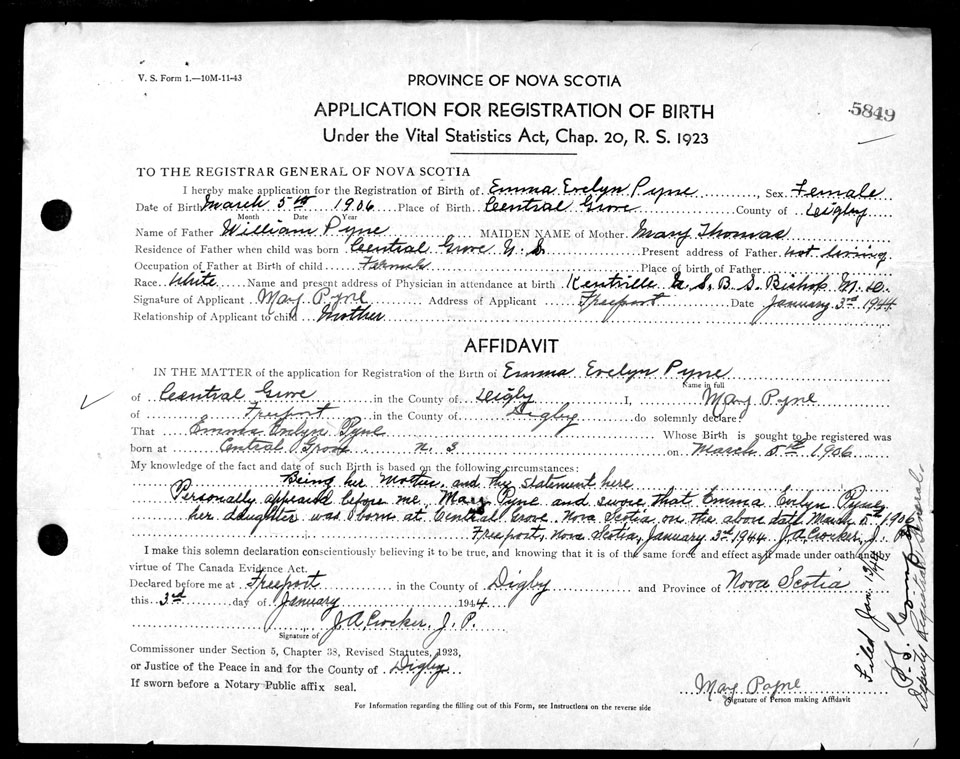 V. S. Form 1.—10M-11-43
PROVINCE OF NOVA SCOTIA
APPLICATION FOR REGISTRATION OF BIRTH
5849
Under the Vital Statistics Act, Chap. 20, R. S. 1923
TO THE REGISTRAR GENERAL OF NOVA SCOTIA
I hereby make application for the Registration of Birth of Emma Evelyn Pyne Sex Female
Date of Birth March 5th 1906 Place of Birth Central Grove County of Digby
Month Date Year
Name of Father William Pyne MAIDEN NAME of Mother Mary Thomas
Residence of Father when child was born Central Grove N.S. Present address of Father not living
Occupation of Father at Birth of child Place of birth of Father
Race White Name and present address of Physician in attendance at birth Kentville N.S. B.S. Bishop M.D.
Signature of Applicant May Pyne Address of Applicant Freeport Date January 3rd 1944
Relationship of Applicant to child Mother
AFFIDAVIT
IN THE MATTER of the application for Registration of the Birth of Emma Evelyn Pyne
Name in full
of Central Grove in the County of Digby I, May Pyne
of Freeport in the County of Digby do solemnly declare:
That Emma Evelyn Pyne Whose Birth is sought to be registered was
born at Central Grove n. s on March 5th 1906
My knowledge of the fact and date of such Birth is based on the following circumstances:
Being her Mother, and this statement here
Personally appeared before me, Mary Pyne and swore that Emma Evlyn Pyne,
her daughter was born at Central Grove, Nova Scotia on the above date March 5th 1906
Freeport, Nova Scotia, January 3rd 1944. J.A. Crocker, J.
I make this solemn declaration conscientiously believing it to be true, and knowing that is of the same force and effect as if made under oath and by
virtue of The Canada Evidence Act.
Declared before me at Freeport in the County of Digby and Province of Nova Scotia
this 3rd day of January 1944
J.A. Crocker, J.P.
Signature of
Commissioner under Section 5, Chapter 38, Revised Statutes, 1923,
or Justice of the Peace in and for the County of Digby
If sworn before a Notary Public affix seal.
May Payne
Signature of Person making Affidavit
For Information regarding the filling out of this Form, see Instructions on the reverse side
Filed Jan. 13/44
Deputy Registrar General